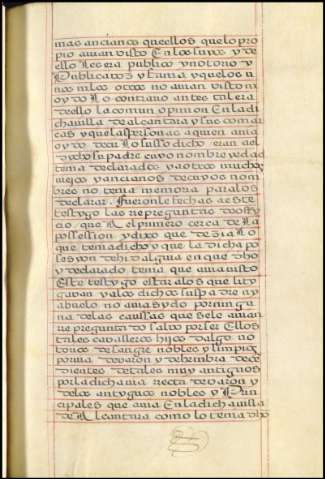 mas ançianos que ellos que lo pro
pio auian visto En los suyos y de
ello Les era publico y notorio y
Publica boz y fama y que los v
nos ni los otros no auian visto ni
oydo Lo contrario antes tal era
de ello la comun opinion En la di
cha villa de alcantara y sus comar
cas y que las personas a quien auia
oydo dezir Lo susso dicho eran al
dicho su padre cuyo nombre y edad
tenia declarado y a otros muchos
viejos y ancianos de cuyos nom
bres no tenia memoria para los
declarar. fueronle fechas a este
testygo las repreguntas de offy
cio. que a el primero cerca de La
possession y dixo que dezia Lo
que tenia dicho y que la dicha po
sesyon de hidalguia en que dho
y declarado tenia que auia visto
Este testygo estar a los que lity
gauan y a los dichos sus padre ny
abuelo no auia sydo por ninguna
na de las caussas que se le auian
repreguntado saluo por ser Ellos
tales caualleros hijos dalgo no
torios de sangre nobles y limpios
por via de varon y de hembra dece
dientes de tales muy antiguos
por la dicha via recta de varon y
de los antyguos nobles y Prin
cipales que auia En la dicha villa
de Alcantara como lo tenia dho